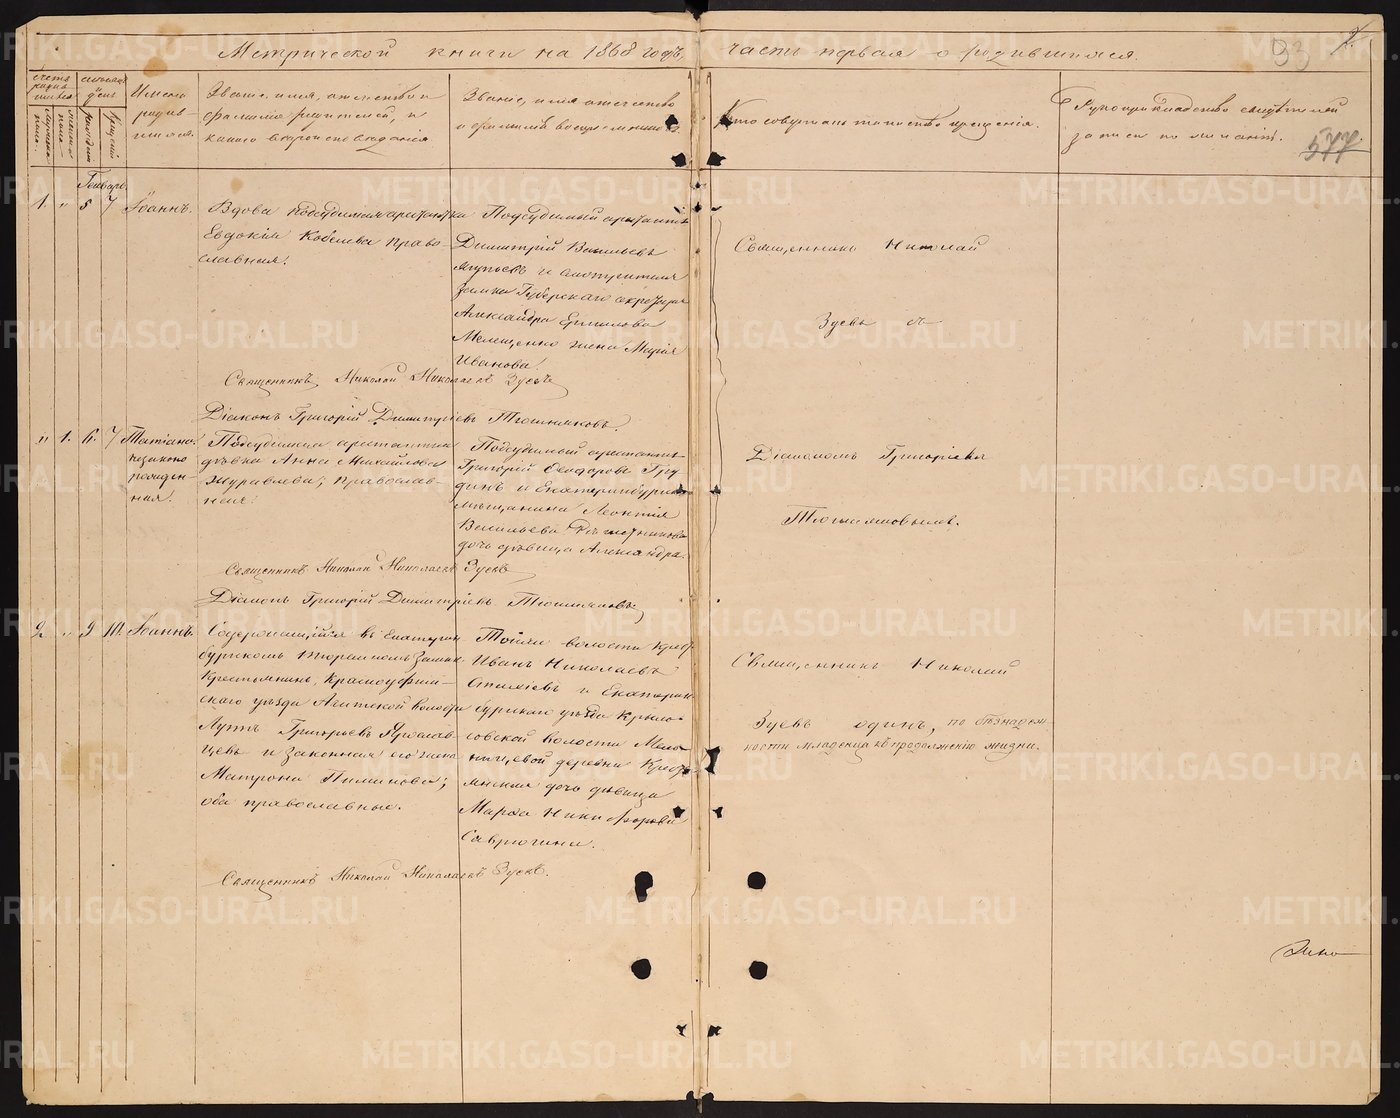 Метрической книги на 1868 годъ, часть первая о родившихся.
93
577
Счетъ родив-шихся
Мѣсяцъ и день
Имена родив-шихся.
Званіе, имя, отчество и
фамилія родителей, и
какого вѣроисповѣданія
Званіе, имя отчество
и фамилія воспріемниковъ
Кто совершалъ таинство крещенія.
Рукоприкладство свидѣтелей
записи по желанію.
Мужеска пола.
Женска пола.
рожденія
Крещенія
Генварь.
1. " 5 7 Іоаннъ.
Вдова подсудимая арестантка
Евдокія Кобелева право-
славная.
Подсудимый арестантъ
Димитрій Васильевъ
и смотрителя
замка Губерскаго секретаря
Александра Ермилова
Мелещенко жена Марія
Иванова.
Священникъ Николай
Зуевъ съ
Священникъ Николай Николаевъ Зуевъ
Діаконъ Григорій Димитріевъ Тюшняковъ.
" 1. 6. 7 Татіана
незаконо
рожден-
ная.
Подсудимая арестантка
дѣвка Анна Михайлова
Журавлева, православ-
ная.
Подсудимый арестантъ
Григорій Ѳеодоровъ Гру-
динъ и Екатеринбургск.
мѣщанина Леонтія
Васильева
дочь дѣвица Александра.
Діакономъ Григоріемъ
Тюшняковымъ.
Священникъ Николай Николаевъ Зуевъ
Діаконъ Григорій Димитріевъ Тюшняковъ
2. " 9 10. Іоаннъ.
Содержащійся въ Екатерин
бургскомъ тюремномъ Замкѣ
Крестьянинъ, Красноуфим-
скаго уѣзда Ачитской волости
Лутъ Григорьевъ Ярослав-
цевъ и законная его жена
Матрона Пиманова;
оба православные.
Тойже волости Крест.
Иванъ Николаевъ
и Екатерин
бургскаго уѣзда Крыло-
совской волости
деревни Крестъ
янская дочь дѣвица
Марѳа Никифорова
Саврулина.
Священникъ Николай
Зуевъ одинъ, по безнадеж-
ности младенца къ продолженію жизни.
Священникъ Николай Николаевъ Зуевъ.
METRIKI.GASO-URAL.RU